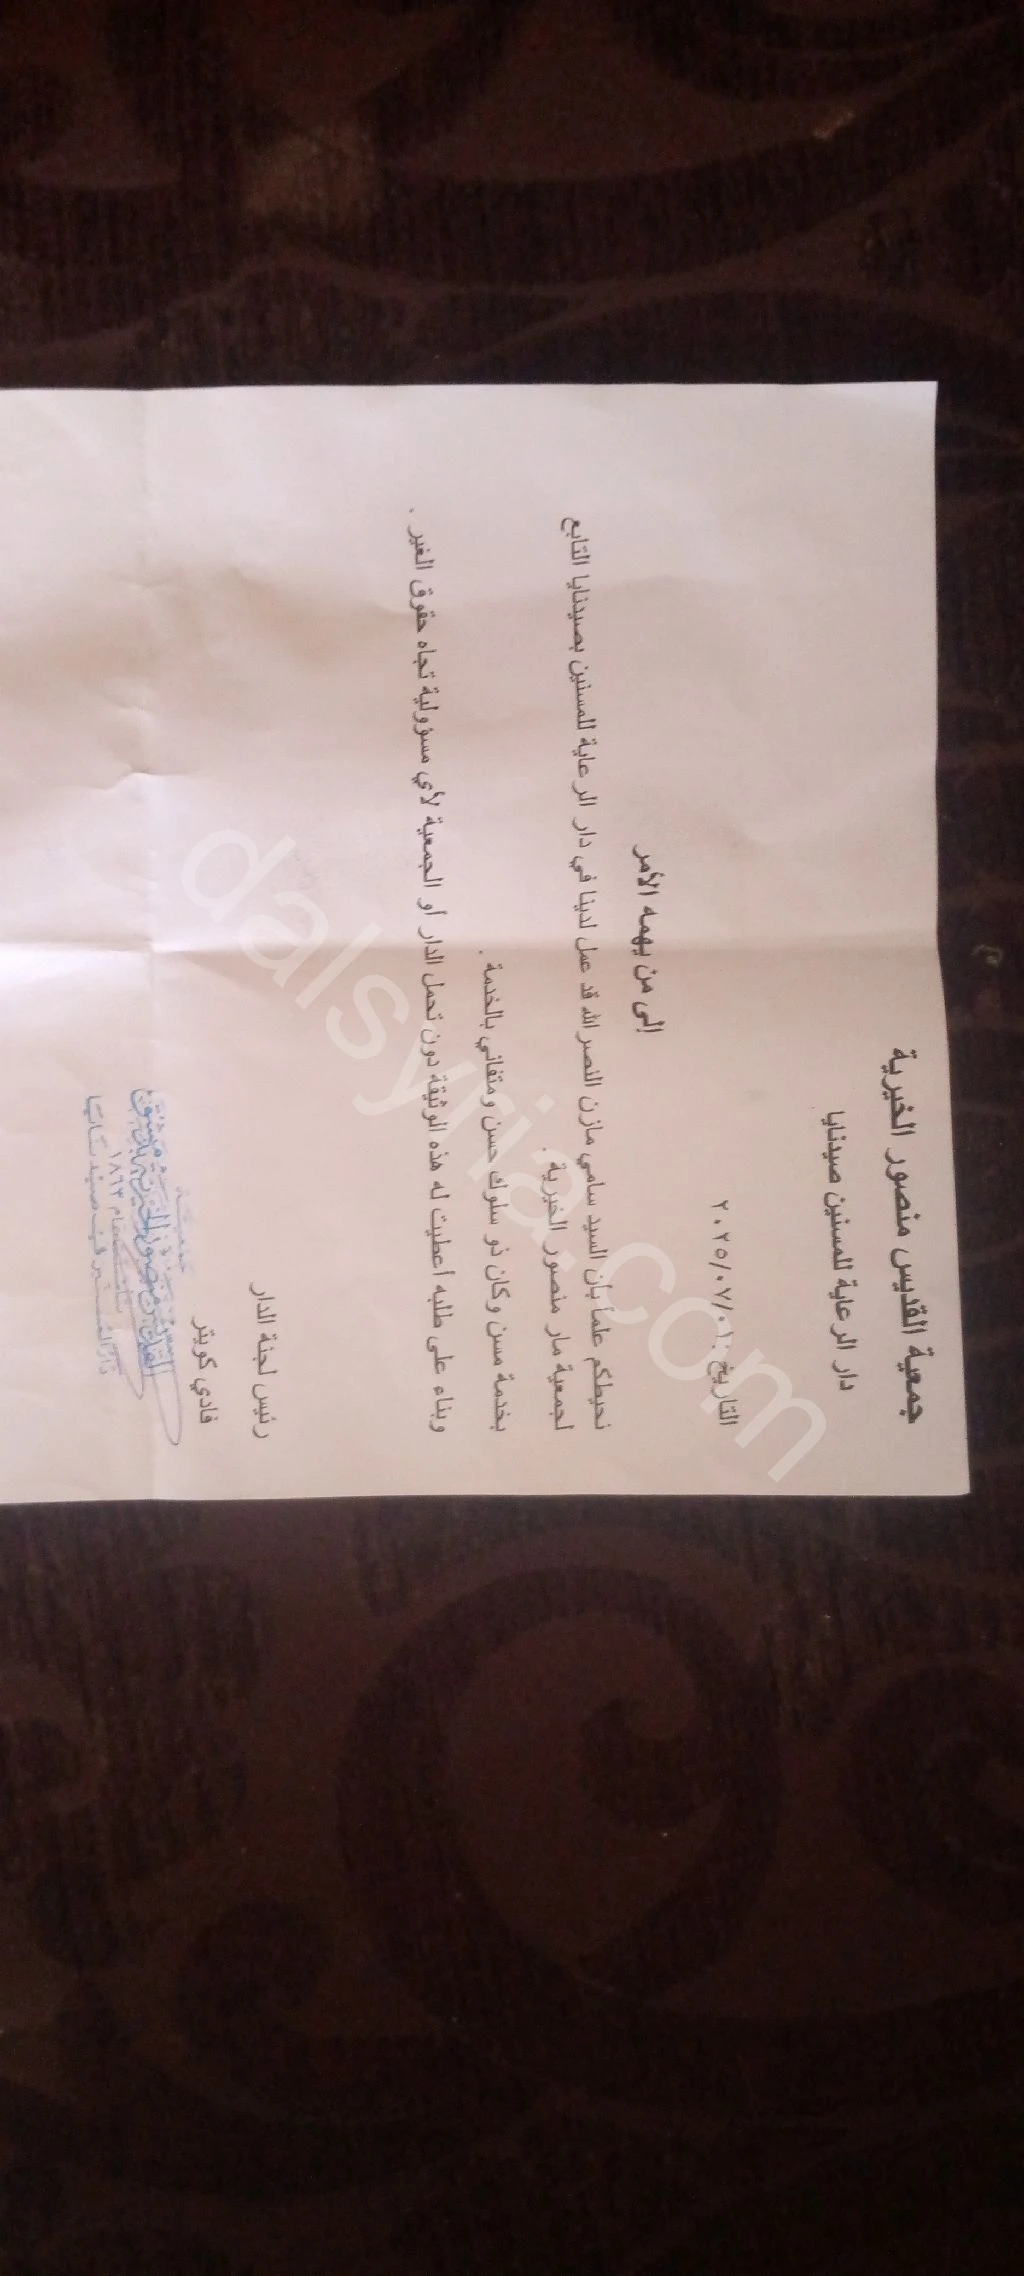 جمعية القديس منصور الخيرية
دار الرعاية للمسنين صيدنايا
التاريخ ٢٠٢٥/٠٧/٠١
إلى من يهمه الأمر
نحيطكم علما بان السيد سامي مازن النصر الله قد عمل لدينا في دار الرعاية للمسنين بصيدنايا التابع
لجمعية مار منصور الخيرية .
بخدمة مسن وكان ذو سلوك حسن ومتفاني بالخدمة .
وبناء على طلبه أعطيت له هذه الوثيقة دون تحمل الدار أو الجمعية لأي مسؤولية تجاه حقوق الغير .
رئيس لجنة الدار
فادي كويتر
جمعية
القديس منصور الخيرية بدمشق
عام ١٨٦٣
dalsyria.com